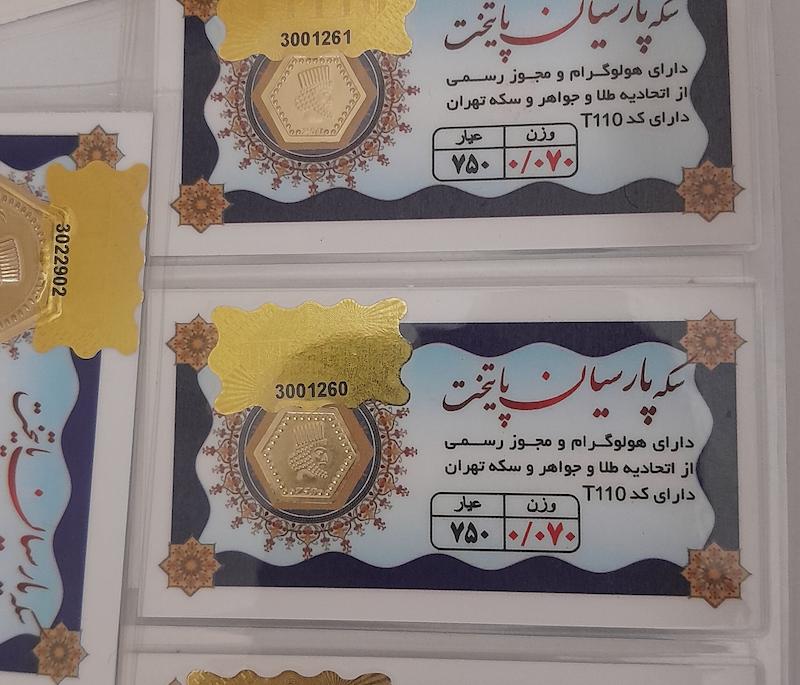 3001261
سکه پارسیان پایتخت
دارای هولوگرام و مجوز رسمی
از اتحادیه طلا و جواهر و سکه تهران
دارای کد T110
وزن عیار
۰/۰۷۰ ۷۵۰
750
3022902
سکه پارسیان پایتخت
3001260
سکه پارسیان پایتخت
دارای هولوگرام و مجوز رسمی
از اتحادیه طلا و جواهر و سکه تهران
دارای کد T110
وزن عیار
۰/۰۷۰ ۷۵۰
750